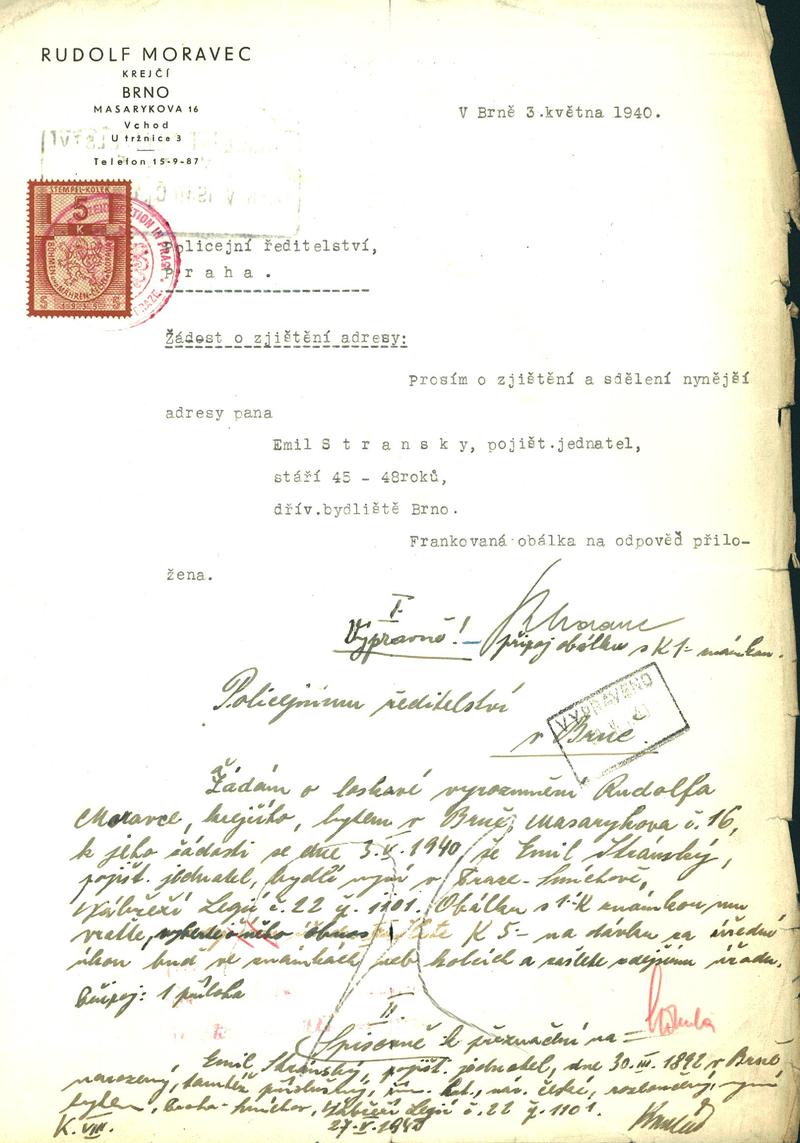 RUDOLF MORAVEC
KREJČÍ
BRNO
MASARYKOVA 16
Vchod
U tržnice 3
Telefon 15-9-87
V Brně 3.května 1940.
STEMPEL-KOLEK
5
K
BÖHMEN MÄHREN
5 1939 5
IN PRAG
Policejní ředitelství,
Praha.
Žádost o zjištění adresy:
Prosím o zjištění a sdělení nynější
adresy pana
Emil Stransky, pojišt.jednatel,
stáří 45 - 48roků,
dřív.bydliště Brno.
Frankovaná obálka na odpověď přilo-
žena.
I.
Výpravně! připoj obálku s K 1- známkou.
Policejnímu ředitelství
v Brně.
VYPRAVENO
Žádám o laskavé vyrozumění Rudolfa
Moravce, krejčího, bytem v Brně, Masarykova č. 16,
k jeho žádosti ze dne 3.V.1940 že Emil Stránský,
pojišt. jednatel, bydlí nyní v Praze-Smíchově,
Nábřeží Legií č. 22 p. 1101. Obálku s 1 K známkou mu
vraťte, K 5- na dávku za úřední
úkon buď ve známkách neb kolcích a zašlete zdejšímu úřadu.
Připoj: 1 příloha
II.
Spisovně k přeznačení na=
Emil Stránský, pojišt. jednatel, dne 30.III.1892 v Brně
narozený, tamtéž příslušný, řím. kat., nár. české, rozloučený, nyní
bytem, Praha-Smíchov, Nábřeží Legií č. 22 p. 1101.
K. VIII. 27.V.1940